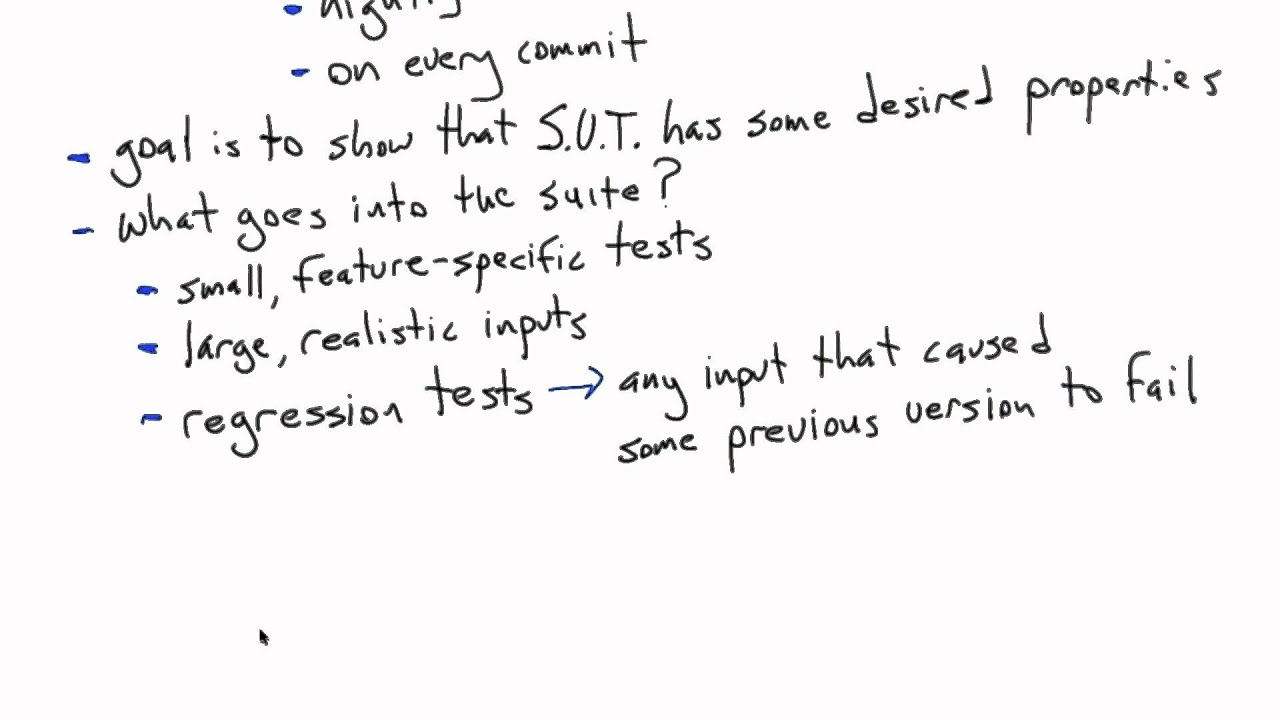 - nightly
- on every commit
- goal is to show that S.U.T. has some desired properties
- what goes into the suite?
- small, feature-specific tests
- large, realistic inputs
- regression tests → any input that caused
some previous version to fail